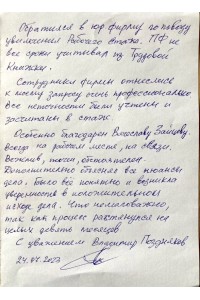 Обратился в юр фирму по поводу
увеличения рабочего стажа. ПФ не
все сроки учитывал из Трудовой
Книжки.
Сотрудники фирмы отнеслись
к моему запросу очень профессионально
Все неточности были учтены и
засчитаны в стаж.
Особенно благодарен Вячеславу Зайцеву.
Всегда на рабочем месте, на связи.
Вежлив, точен, обстоятелен.
Дополнительно объяснял все нюансы
дела. Было всё понятно и возникла
уверенность в положительном
исходе дела. Что немаловажно,
так как процесс растянулся на
целых девять месяцев
С уважением Владимир Поздняков
24.07.2023